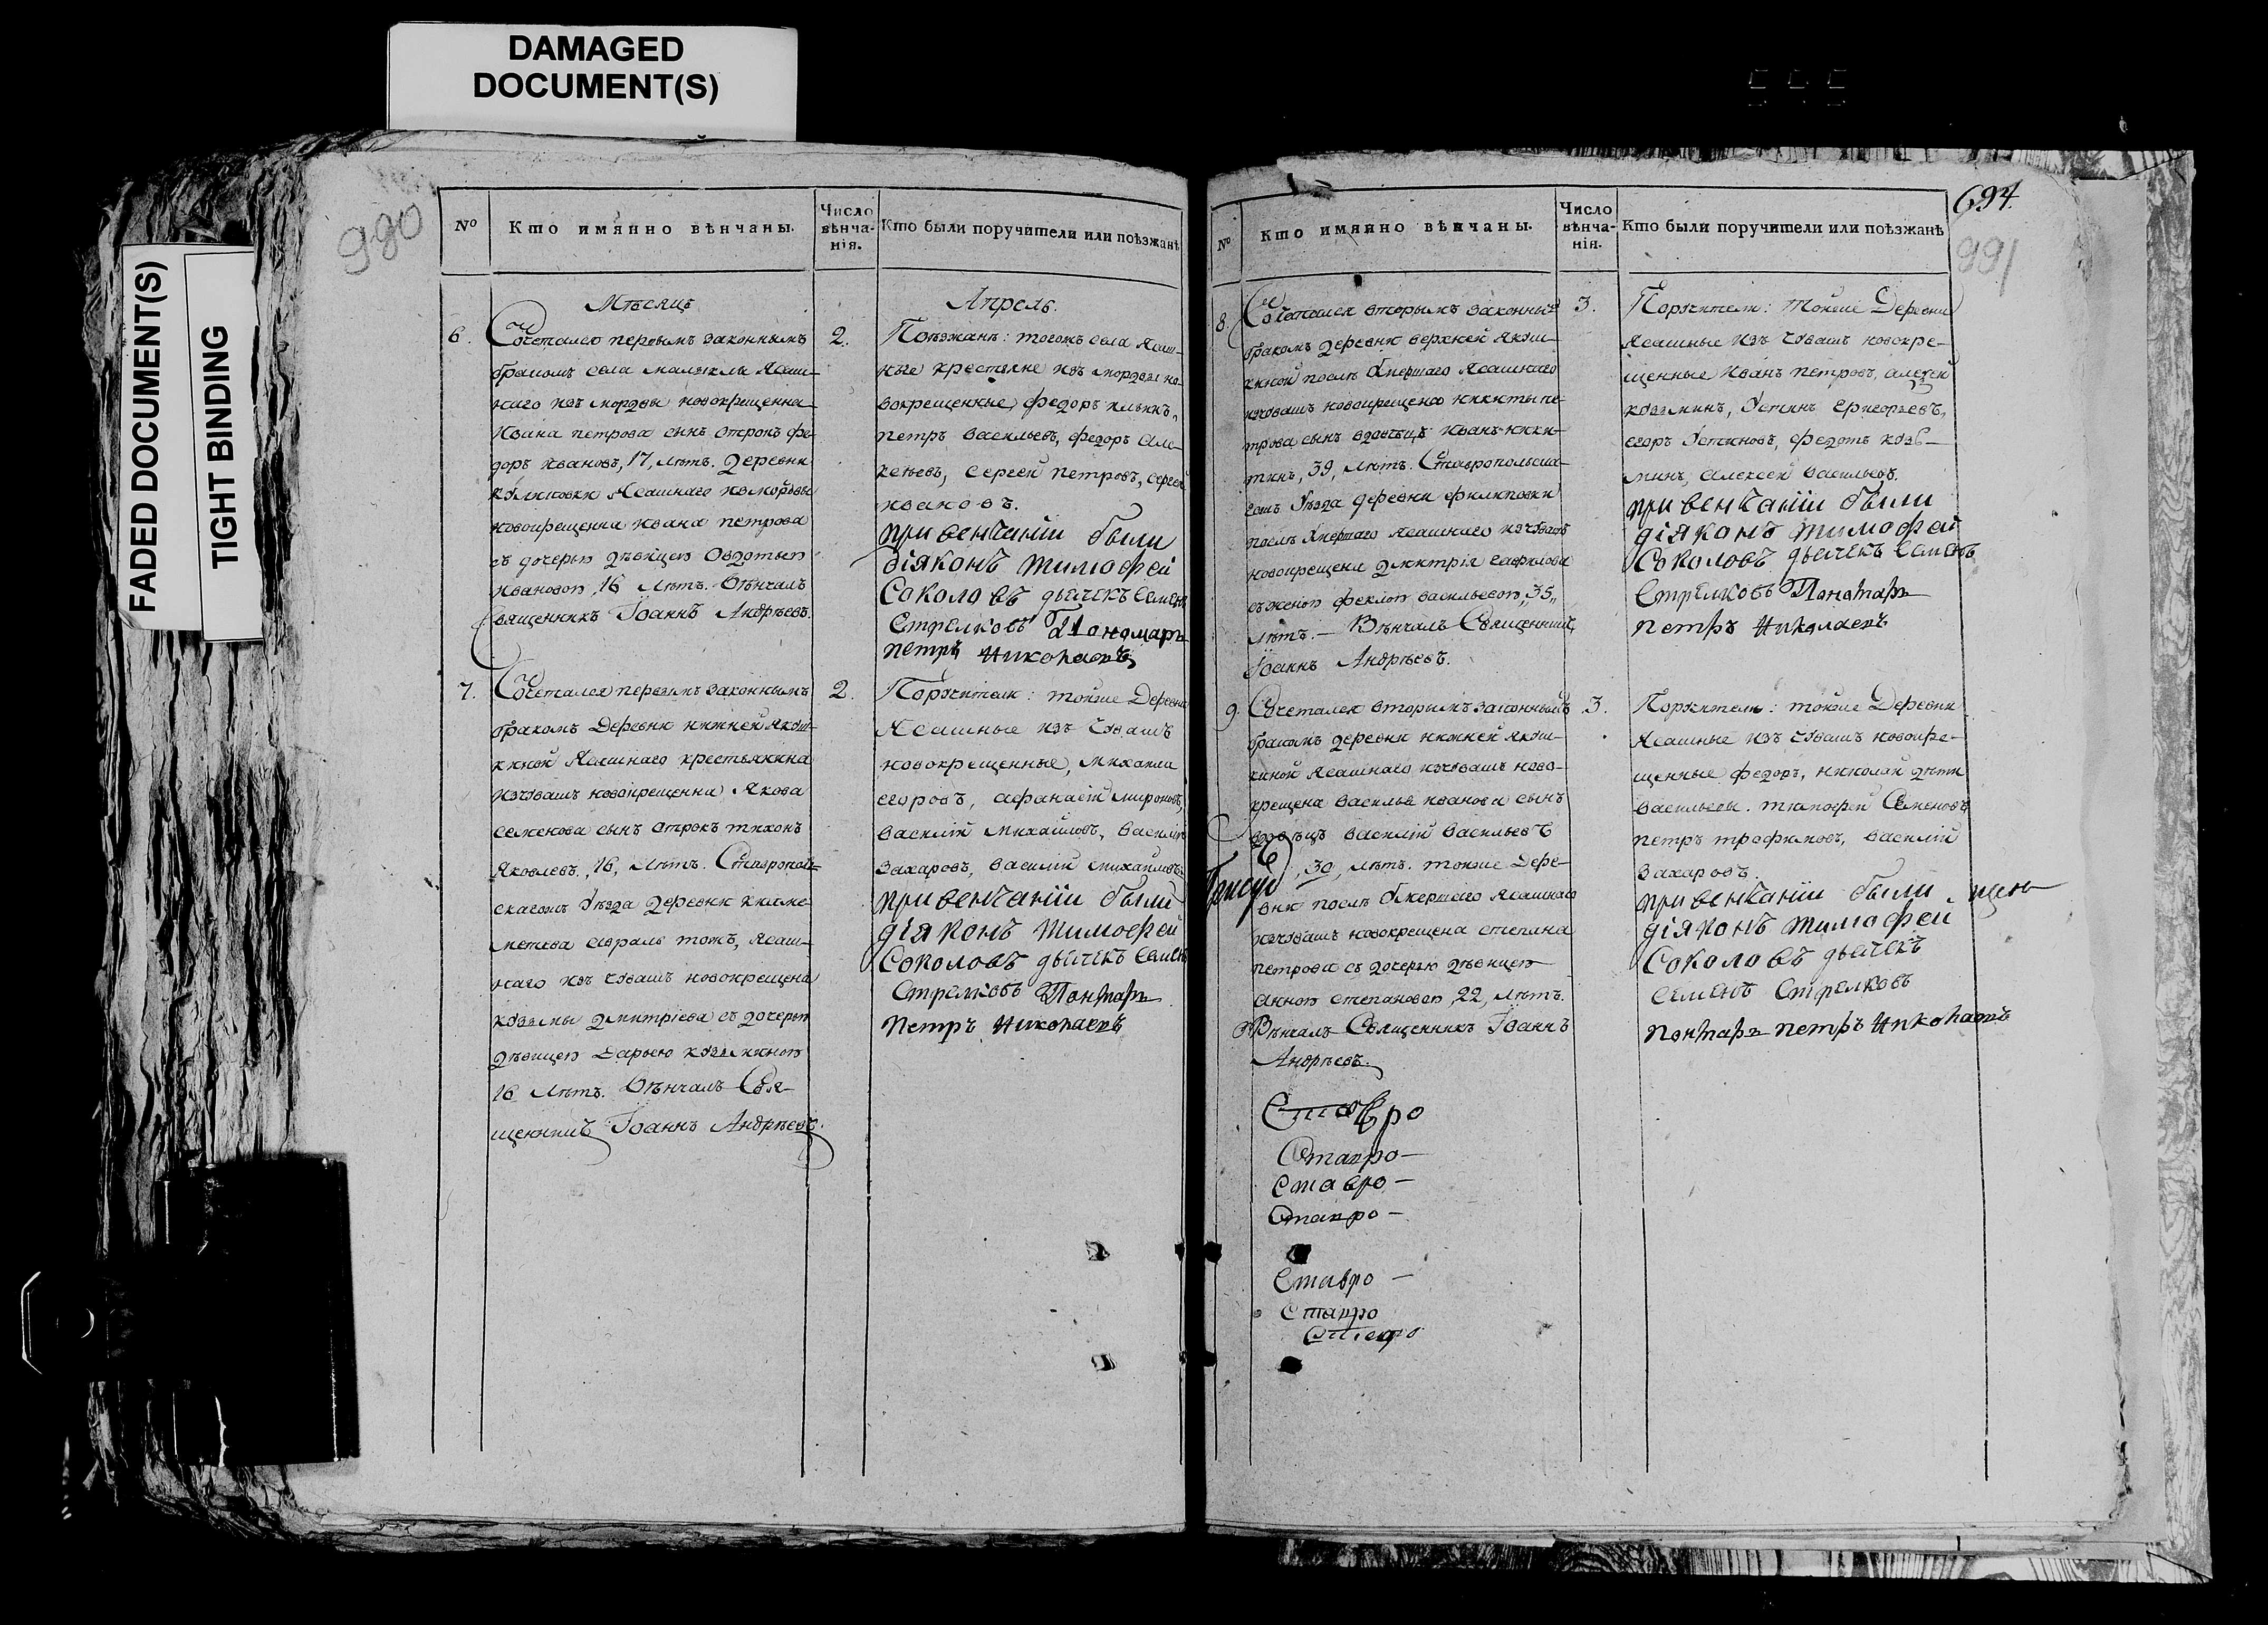 DAMAGED
DOCUMENT(S)
FADED DOCUMENT(S)
TIGHT BINDING
980
№
Кто имянно вѣнчаны.
Число
вѣнча-
нія.
Кто были поручители или поѣзжанѣ
Мѣсяцъ
Апрель.
6.
Сочетался первымъ законнымъ
бракомъ села малыклы Ясаш-
наго изъ мордвы новокрещенна
Ивана петрова сынъ отрокъ фе-
доръ Ивановъ, 17, лѣтъ. деревни
Ясашнаго измордвы
новокрещенна ивана петрова
съ дочерью дѣвицею Овдотьею
Ивановою, 16 лѣтъ. Вѣнчалъ
Священникъ Іоаннъ Андрѣевъ.
2.
Поѣзжанѣ: тогожъ села Ясаш-
ные крестьяне изъ мордвы но-
вокрещенные, федоръ
петръ Васильевъ, федоръ Але-
ксѣевъ, Сергей петровъ, сергей
ивановъ.
при венчаніи были
діяконъ тимофей
Соколовъ дьячекъ Семенъ
Стрелковъ Пономарь
петръ Николаевъ
7.
Сочетался первымъ законнымъ
бракомъ Деревни нижней якуш-
киной Ясашнаго крестьянина
изчувашъ новокрещенна Якова
семенова сынъ отрокъ тихонъ
Яковлевъ, 16, лѣтъ. Ставрополь-
скагожъ уѣзда деревни
тожъ, Ясаш-
наго изъ чувашъ новокрещена
козьмы дмитріева съ дочерью
дѣвицею Дарьею козьминою
16 лѣтъ. Вѣнчалъ Свя-
щенникъ Іоаннъ Андрѣевъ.
2.
Поручители: тойже Деревни
Ясашные изъ чувашъ
новокрещенные, михаила
егоровъ, афанасій мироновъ,
василій михайловъ, василій
захаровъ, василій михайловъ
при венчаніи были
діяконъ тимофей
Соколовъ дьячекъ Семенъ
Стрелковъ Понмарь
Петръ Николаевъ
694.
991
№
Кто имянно вѣнчаны.
Число
вѣнча-
нія.
Кто были поручители или поѣзжанѣ
8.
Сочетался вторымъ законнымъ
бракомъ деревни верхней якуш-
киной послѣ умершаго Ясашнаго
изчувашъ новокрещена никиты пе-
трова сынъ вдовѣцъ иванъ ники-
тинъ, 39, лѣтъ. Ставропольска-
гожъ уѣзда деревни филиповки
послѣ умершаго ясашнаго изчувашъ
новокрещена дмитрія
съженою феклою васильевою, 35,
лѣтъ. — Вѣнчалъ Священникъ
Іоаннъ Андрѣевъ.
3.
Поручители: тойже Деревни
Ясашные изъ чувашъ новокре-
щенные иванъ петровъ, алексей
козьминъ, устинъ григорьевъ,
егоръ устиновъ, федотъ козь-
минъ, алексей васильевъ.
при венчаніи были
діяконъ тимофей
Соколовъ дьячекъ Семенъ
Стрелковъ Понамарь
петръ Николаевъ
9.
Сочетался вторымъ законнымъ
бракомъ деревни нижней якуш-
киной ясашнаго изчувашъ ново-
крещена василья иванова сынъ
вдовѣцъ василій васильевъ
, 30, лѣтъ. тойже дере-
вни послѣ умершаго ясашнаго
изчувашъ новокрещена степана
петрова съ дочерью дѣвицею
анною степановою, 22, лѣтъ.
Вѣнчалъ Священникъ Іоаннъ
Андрѣевъ.
Ставро
Ставро —
Ставро —
Ставро —
Ставро —
Ставро
Ставро
3.
Поручители: тойже Деревни
Ясашные изъ чувашъ новокре-
щенные федоръ, николай дѣти
васильевы. тимофей Семеновъ
петръ трофимовъ, василій
захаровъ.
при венчаніи были
діяконъ тимофей
Соколовъ дьячекъ
семенъ Стрелковъ
понмарь петръ Николаевъ